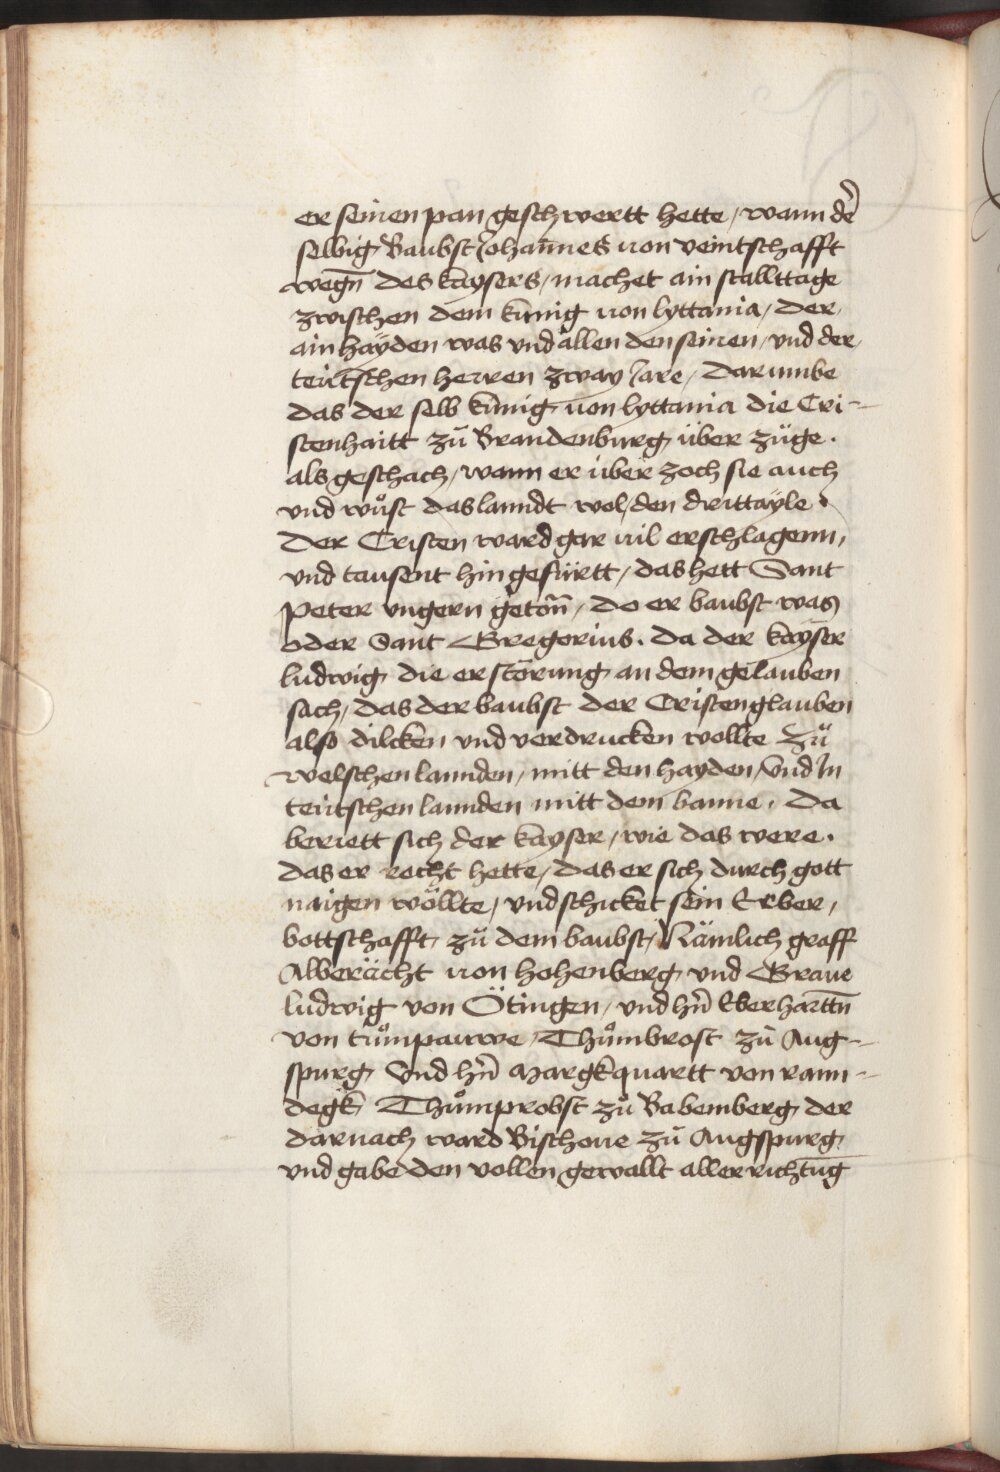 er seinen pan geschwertt hette / wann dē
selbig Baubst Johannes von veintschafft
wegn̄ des kaysers / machet ain stallttage
zwischen dem kúnig von lyttania / der
ain hayden was vnd allen den seinen / vnd der
teẅtschen herren zway Jare / darumbe
das der selb kúnig von lyttania die Cri-
stenhaitt zů Brandenburg über züge .
als geschach / wann er über zoch sie auch
vnd wůst das lanndt wol / den drittayle .
Der Cristen ward gar vil erschlagenn /
vnd tausent hin gefürtt / das hett Sant
Peter vngern geton̄ / do er baubst was
oder Sant Gregorius . da der kayser
ludwig die erstörung an dem gelauben
sach / das der baubst der Cristenglauben
also dilcken vnd verdrucken wollte zů
welschen lannden / mitt den hayden / vnd In
teẅtschen lannden mitt dem banne . Da
beriett sich der kayser / wie das were .
das er recht hette / das er sich durch gott
naigen wöllte / vnd schicket sein Erber /
bottschafft zů dem baubst / Nämlich graff
Alberächt von Hohenberg vnd Graue
ludwig von Ötingen / vnd hn̄ Eberharttn̄
von tůmpauwe / Thůmbrost zů Aug-
spurg vnd hn̄ Margkquartt von rann-
degk Thůmprobst zů Babemberg der
darnach ward Bischoue zů Augspurg
vnd gabe den vollen gewallt aller richtūg